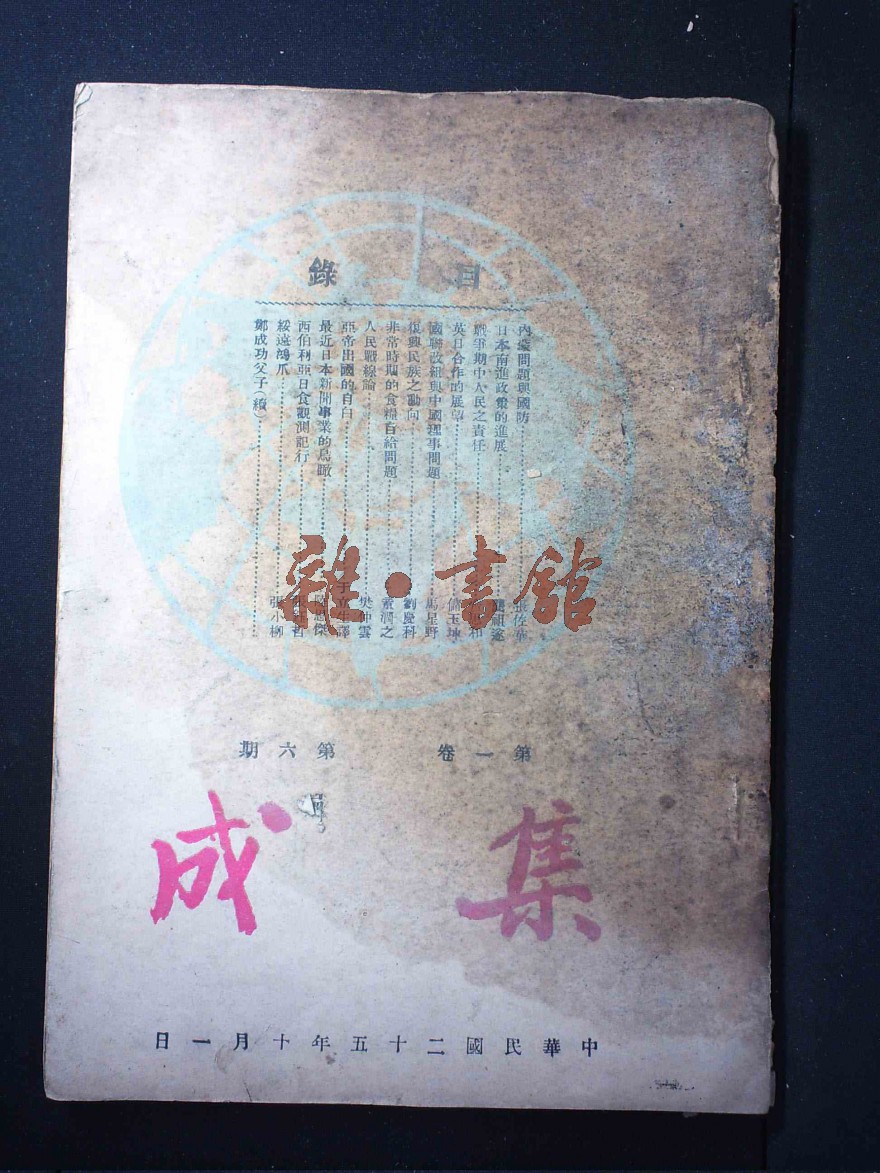 目錄
內蒙問題與國防
日本南進政策的進展
戰爭期中人民之責任
英日合作的展望
國聯改組與中國理事問題 馬星野
復興民族之動向 劉慶科
非常時期的食糧自給問題 董潤之
人民戰線論 樊仲雲
亞帝出國的自白 于立生譯
最近日本新聞事業的鳥瞰
西伯利亞日食觀測記行
綏遠鴻爪
鄭成功父子(續) 張小柳
雜·書館
第一卷 第六期
集成
中華民國二十五年十月一日